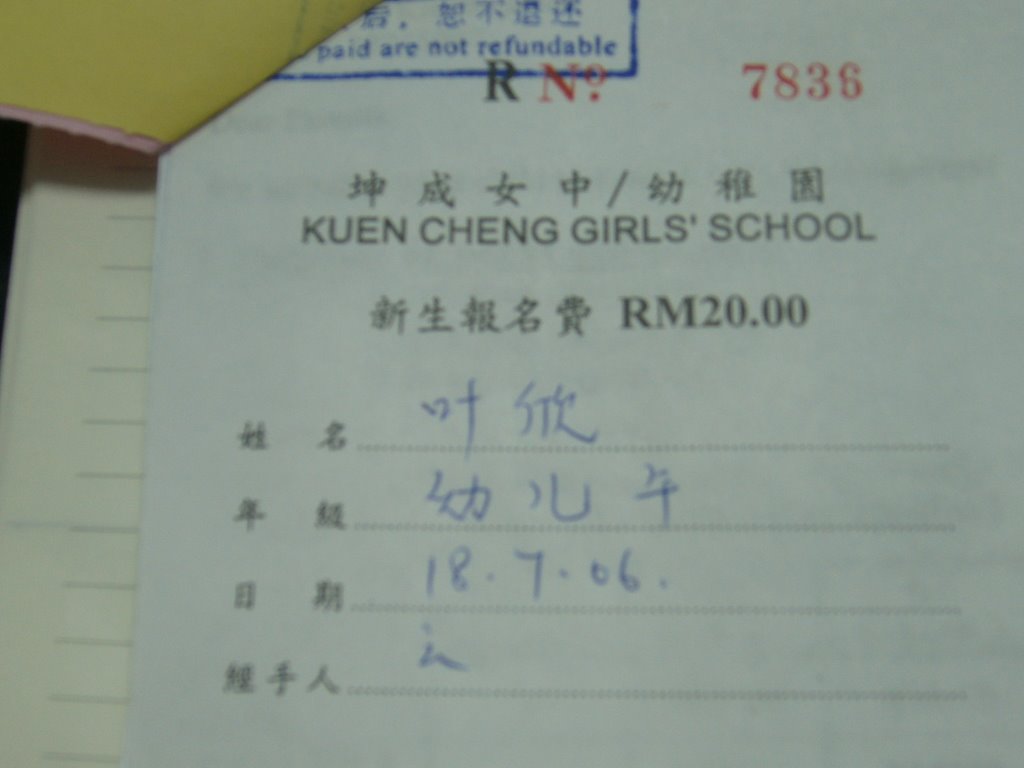 后，恕不退还
paid are not refundable
R Nº 7836
坤成女中/幼稚園
KUEN CHENG GIRLS' SCHOOL
新生報名費 RM20.00
姓 名 叶欣
年 級 幼儿午
日 期 18.7.06.
經手人